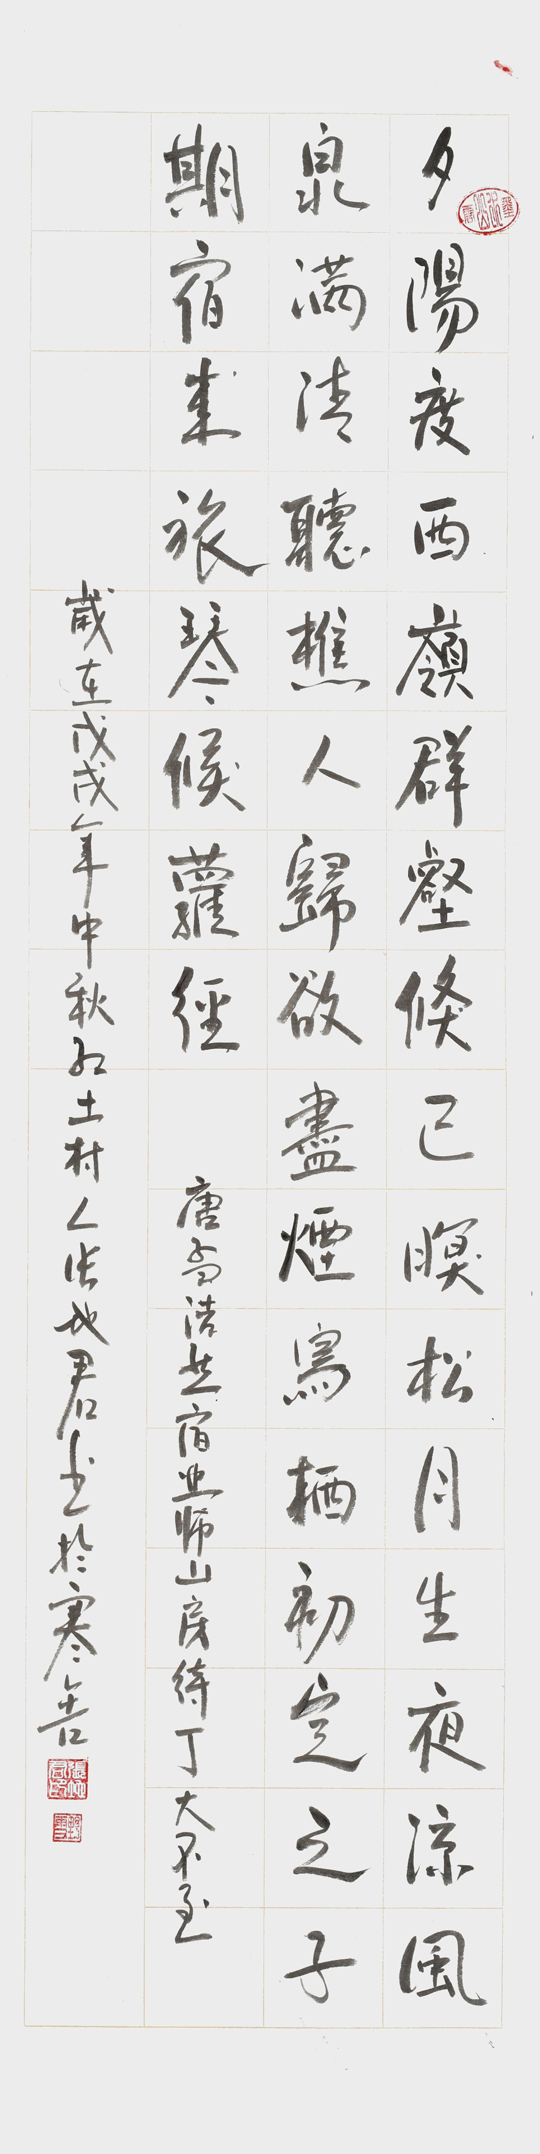 夕陽度西嶺群壑倏已暝松月生夜凉風
泉满清聽樵人歸欲盡煙鳥栖初定之子
期宿来孤琴候蘿徑
唐孟浩然宿业师山房待丁大不至
歲在戊戌年中秋红土村人张君书於寒舍